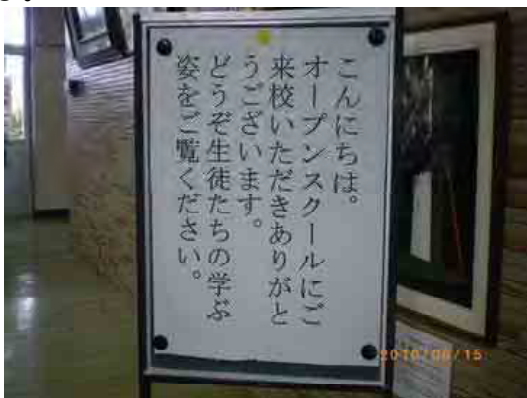 こんにちは。
オープンスクールにご
来校いただきありがと
うございます。
どうぞ生徒たちの学ぶ
姿をご覧ください。
2010/06/15